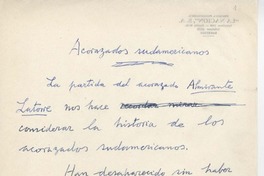 Acorazados sudamericanos
La partida del acorazado Almirante
Latorre nos hace
considerar la historia de los
acorazados sudamericanos.
Han desaparecido sin haber